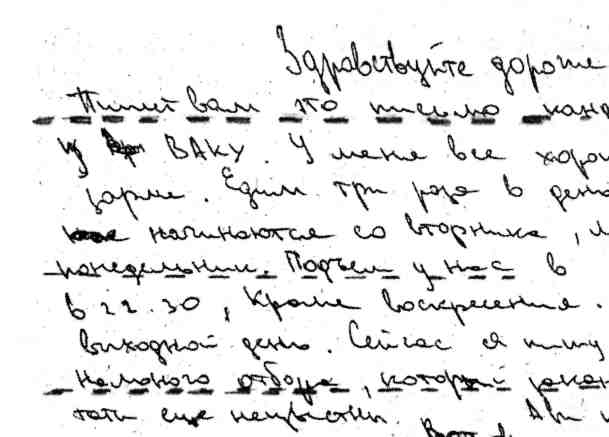 Здравствуйте дорогие
Пишет вам это письмо канд
из ВАКУ. У меня все хорош
Едим три раза в день
начинаются со вторника,
понедельник. Подъем у нас в
в 22.30, кроме воскресения.
выходной день. Сейчас я пишу
отбора, который закан
еще неизвестны.